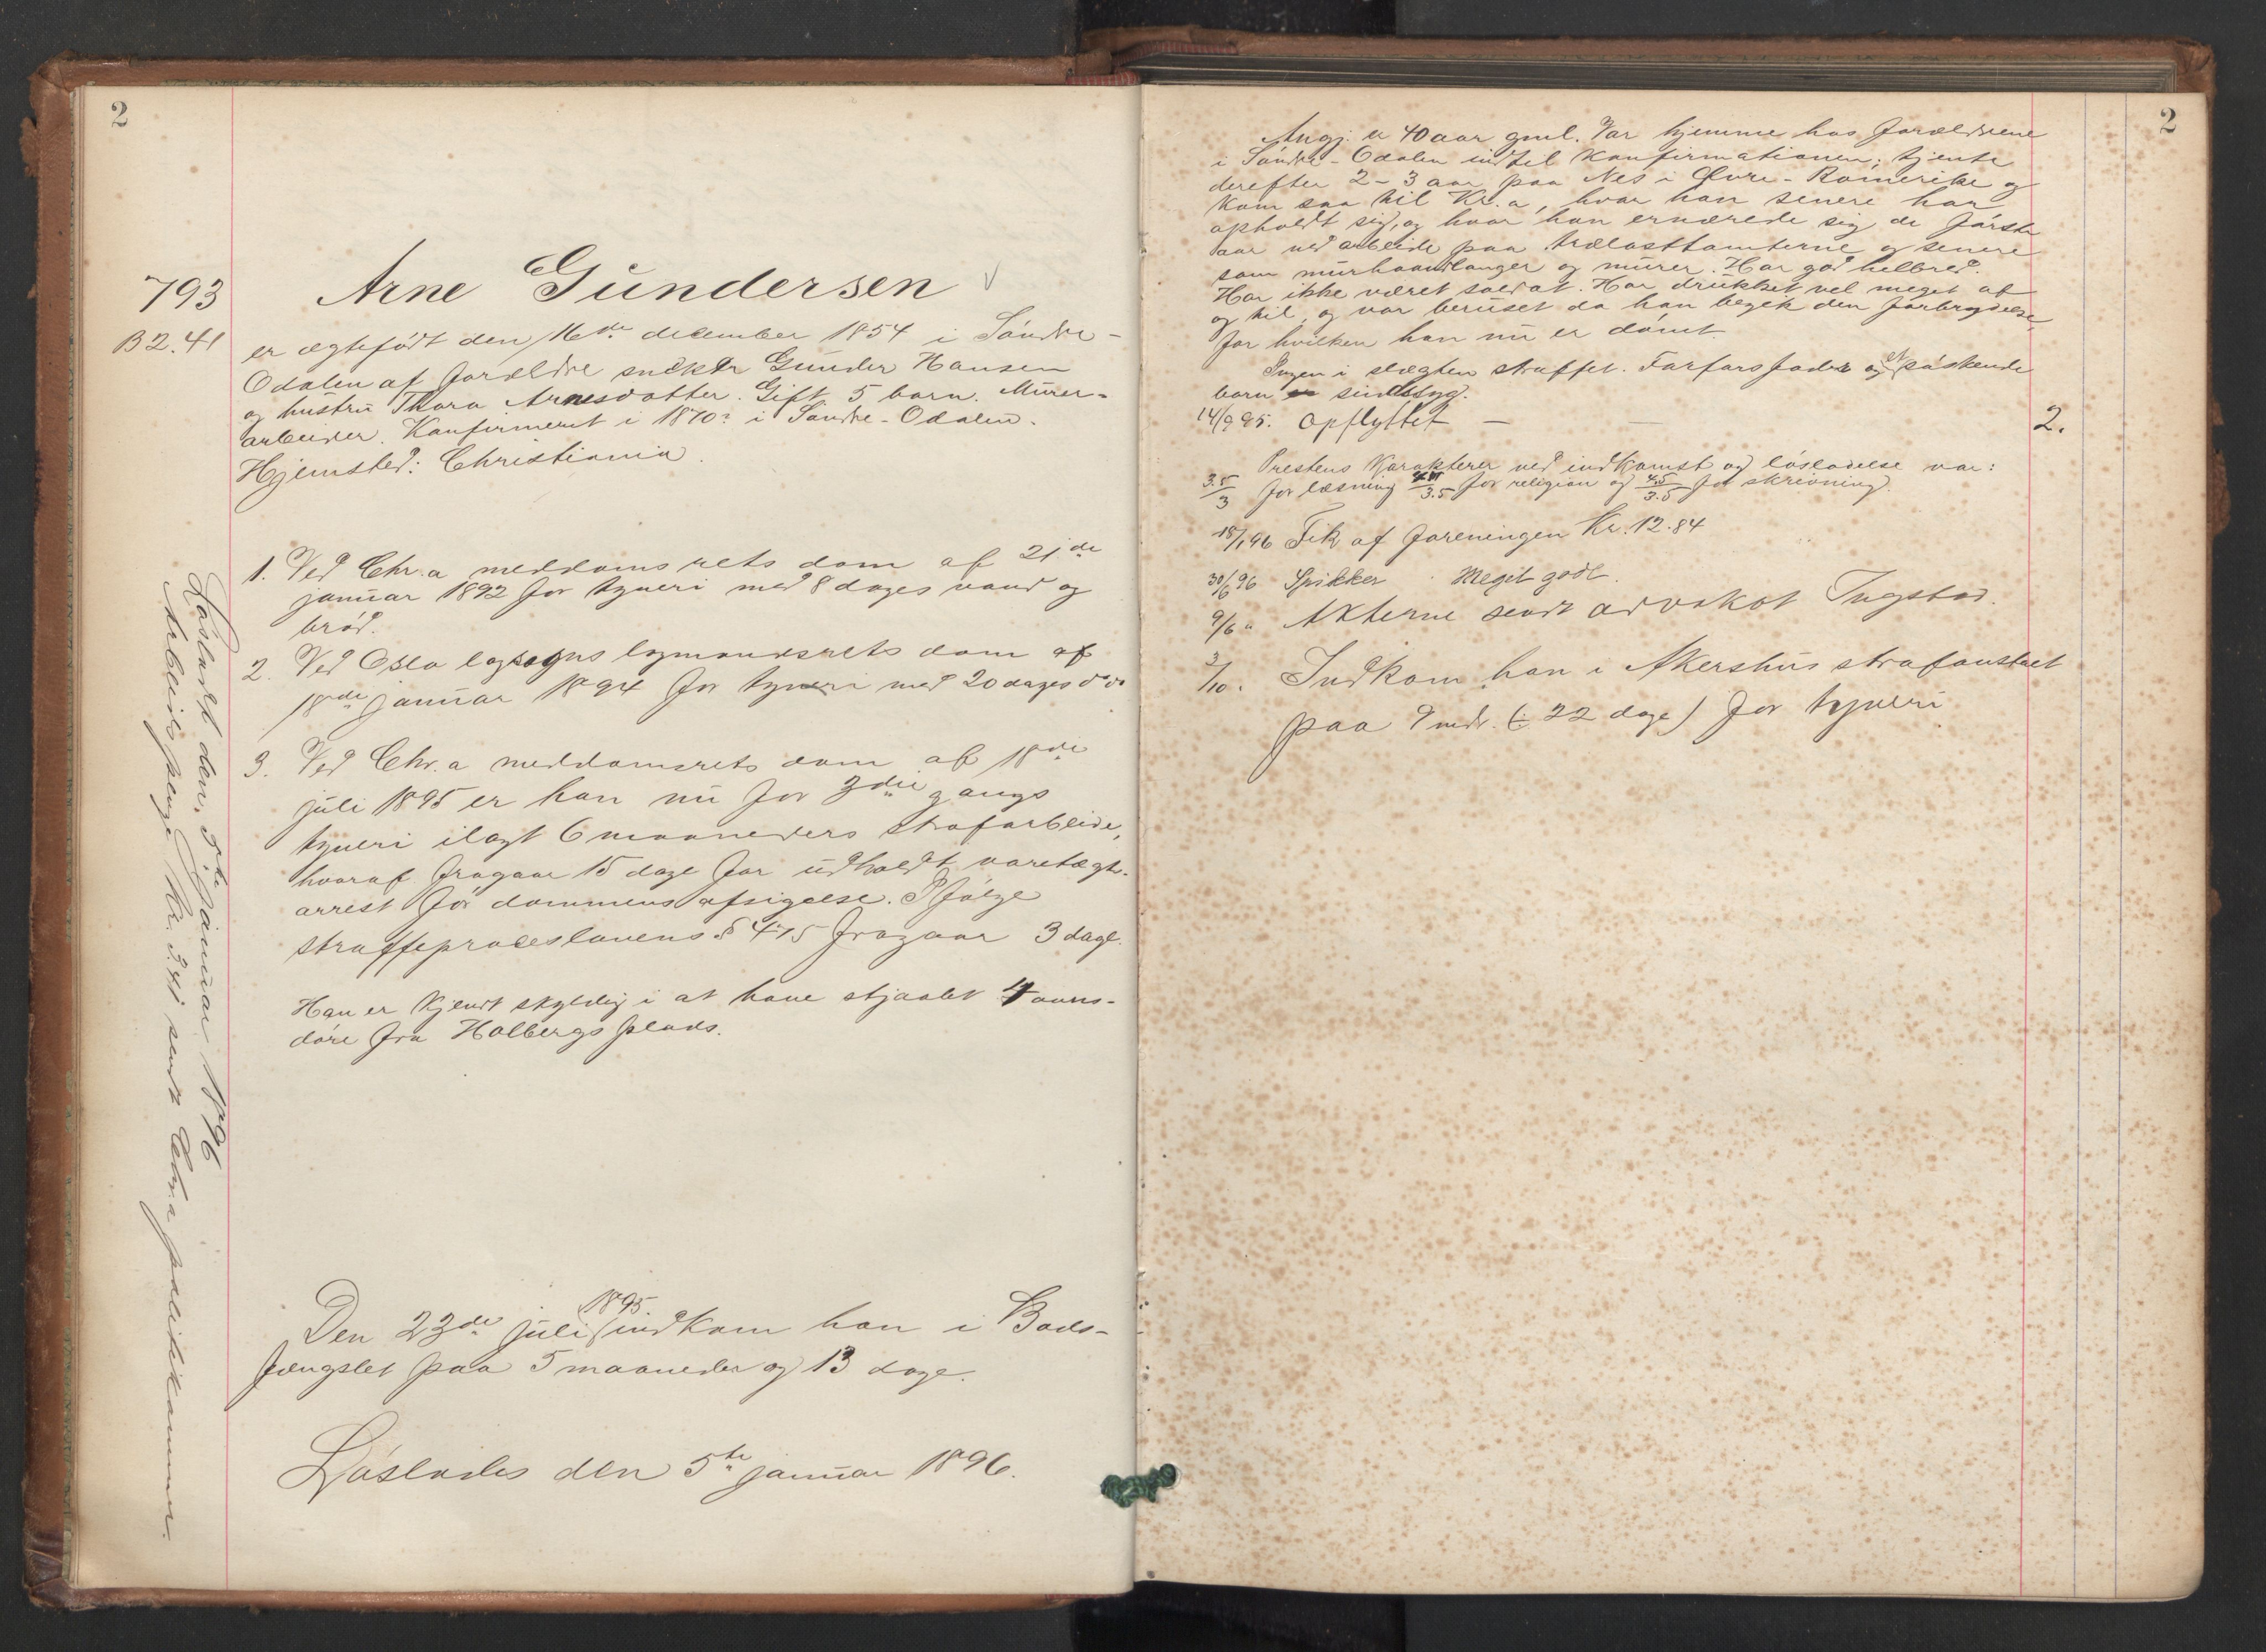 2
793
B 2.41
Arne Gundersen
er ægtefødt den 16de december 1854 i Søndre-
Odalen af forældre snekker Gunder Hansen
og hustru Thora Arnesdatter. Gift 5 barn. Murer-
arbeider. Konfirmert i 1870? i Søndre-Odalen.
Hjemsted: Christiania.
1. Ved Chr.a meddomsrets dom af 21de
januar 1892 for tyveri med 8 dages vand og
brød.
2. Ved Oslo lagsogns lagmandsrets dom af
18de januar 1894 for tyveri med 20 dages do do
3. Ved Chr.a meddomsrets dom af 18de
juli 1895 er han nu for 3die gangs
tyveri ilagt 6 maaneders strafarbeide,
hvoraf fragaar 15 dage for udholdt varetægts-
arrest før dommens afsigelse. Ifølge
straffeproceslovens § 415 fragaar 3 dage.
Han er kjendt skyldig i at have stjaalet 4 ovns-
døre fra Holbergs plads.
Den 23de juli 1895 indkom han i Bods-
fængslet paa 5 maaneder og 13 dage.
Løslades den 5te januar 1896.
Løsladt den 5te Januar 1896
Arbeidspenge Kr. 3.41 sendt Chr.a politikammer.
2
Angj. er 40 aar gml. Var hjemme hos forældrene
i Søndre-Odalen indtil konfirmationen; tjente
derefter 2-3 aar paa Nes i Øvre-Romerike og
kom saa til Kr.a, hvor han senere har
opholdt sig, og hvor han ernærede sig de første
aar ved arbeide paa trælasttomterne og senere
som murhaandlanger og murer. Har god helbred.
Har ikke været soldat. Har drukket vel meget af
og til, og var beruset da han begik den forbrydelse
for hvilken han nu er dømt.
Ingen i slægten straffet. Farfars fader og et søskende
barn sindssyg.
14/9 95. Opflyttet — — 2.
Prestens karakterer ved indkomst og løsladelse var:
3.5/3 for læsning /3.5 for religion og 4.5/3.5 for skrivning.
18/1 96 Fik af foreningen Kr. 12.84
30/6 96 Spikker. Meget godt.
9/6 " Akterne sendt advokat Ingstad.
3/10. Indkom han i Akershus strafanstalt
paa 9 mdr. (÷ 22 dage) for tyveri